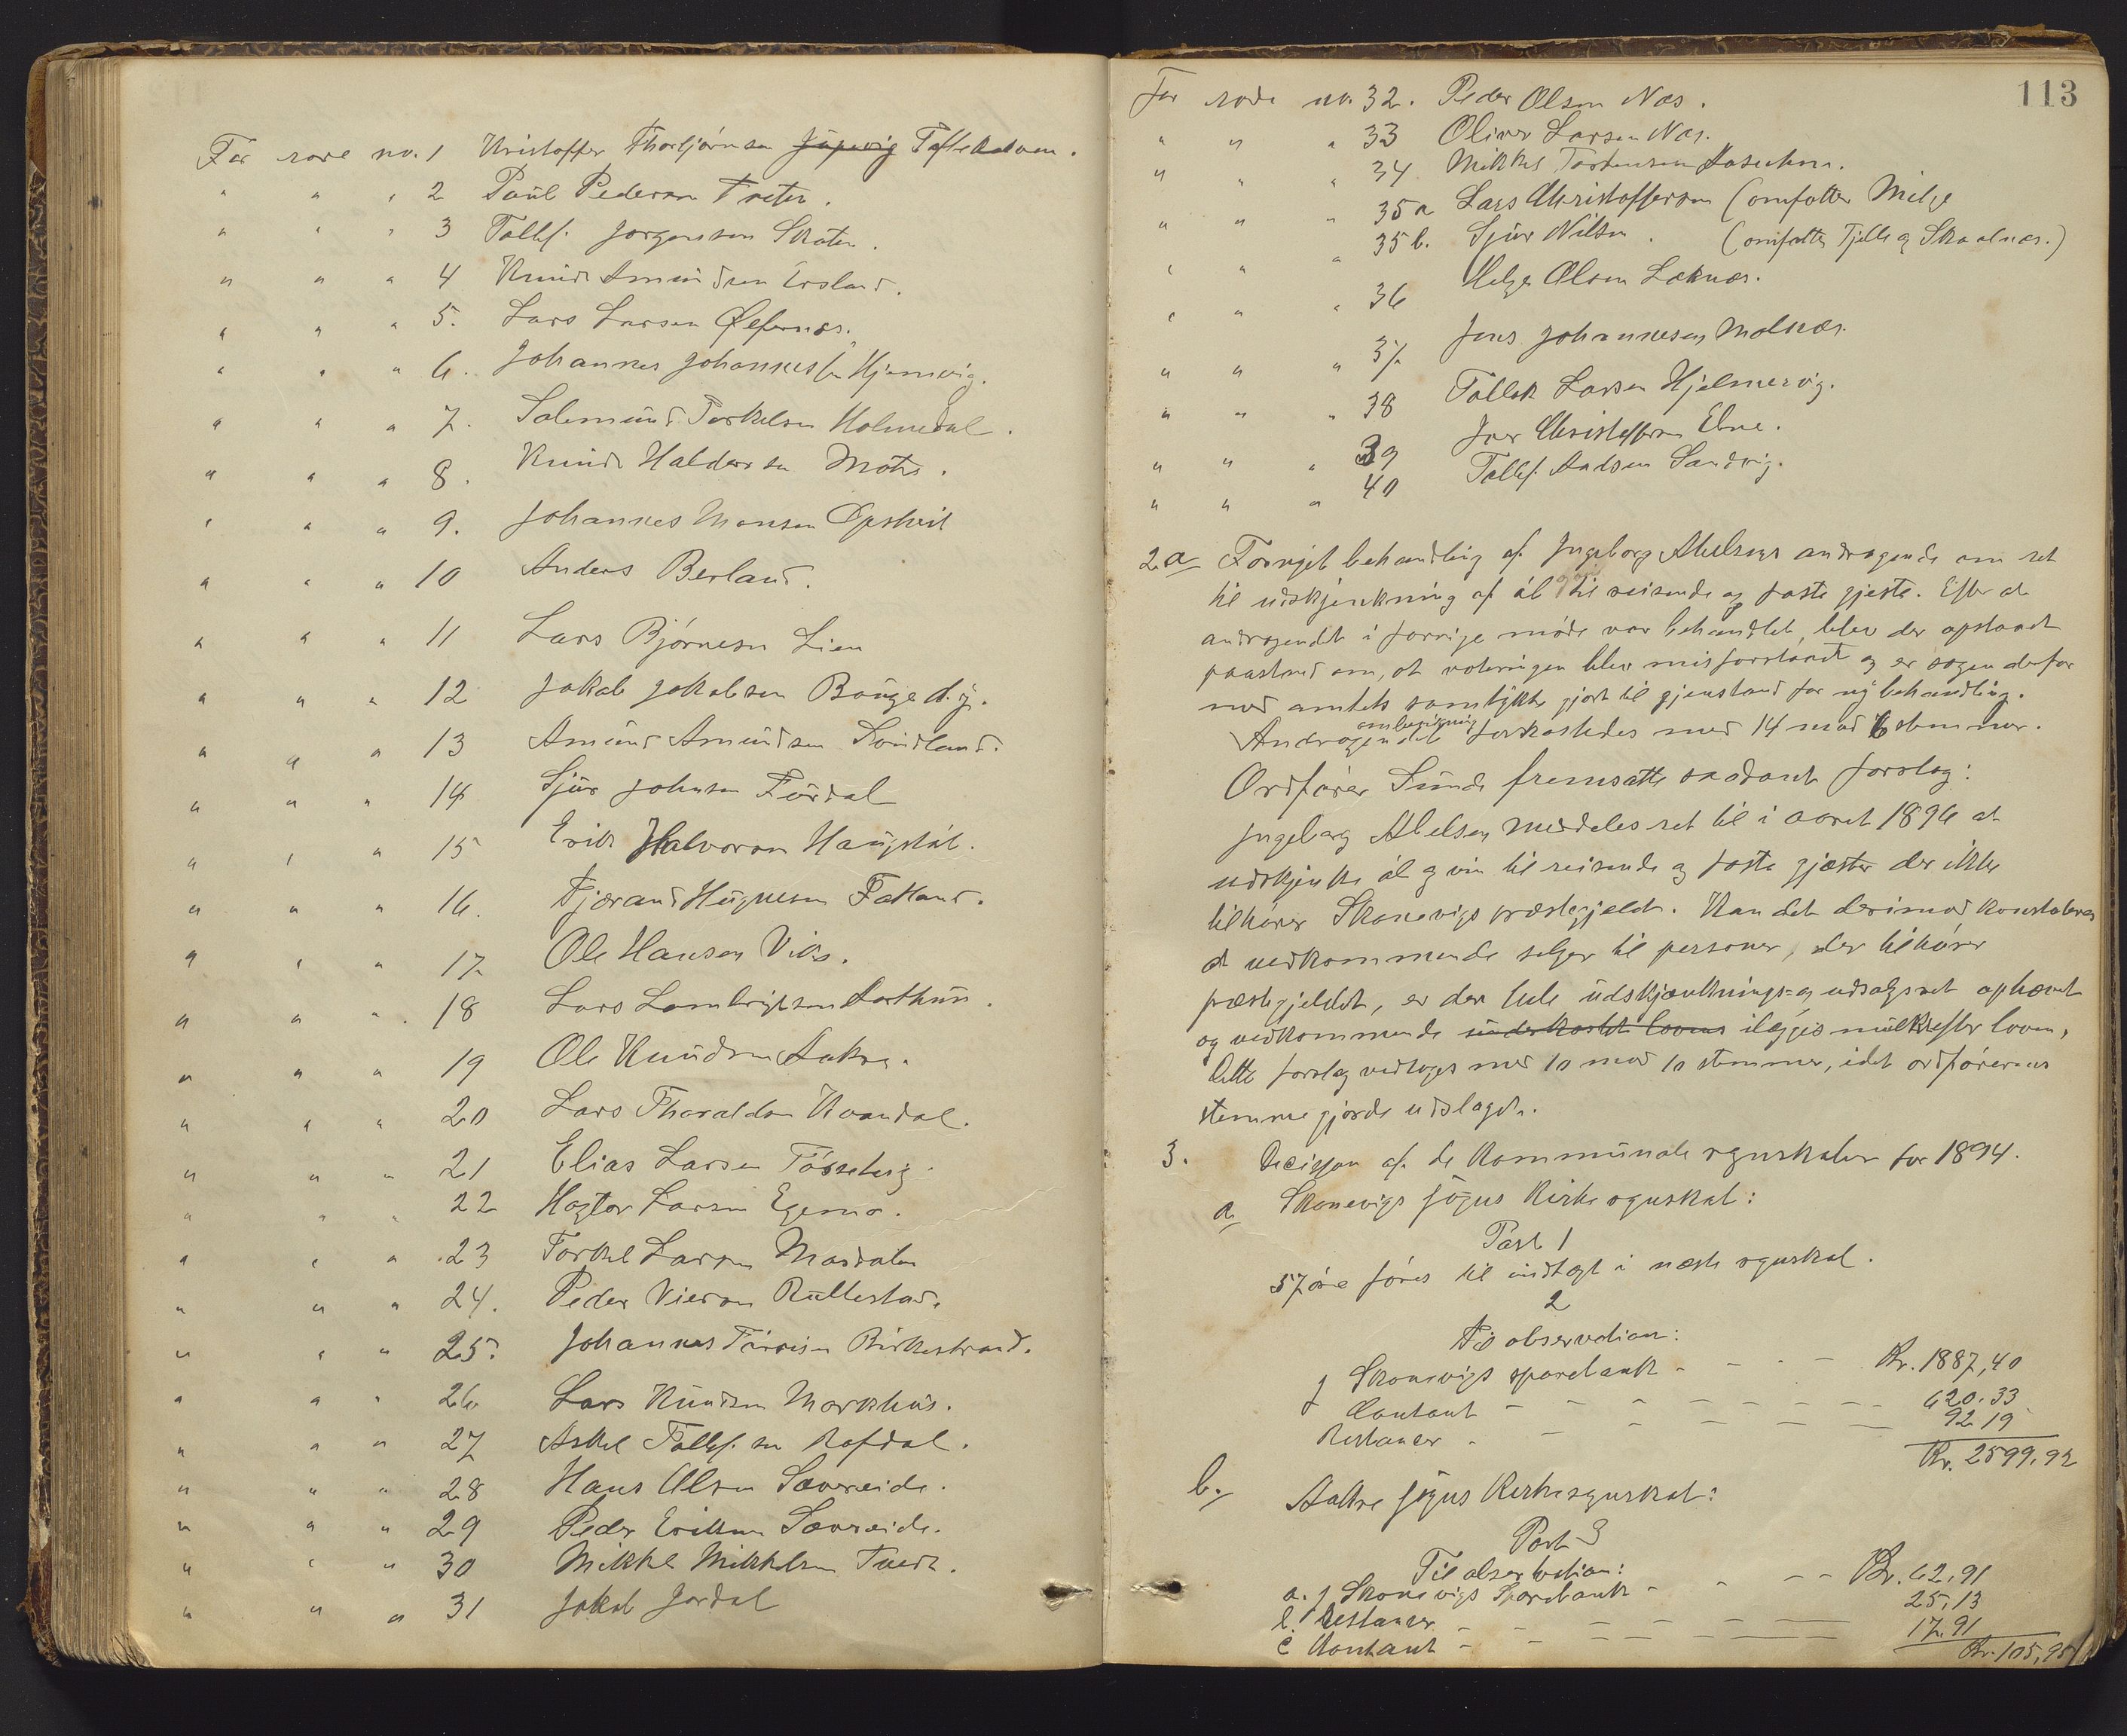 For rode no. 1 Kristoffer Thorbjørnsen Jüpevig Toftekalven.
" " " 2 Paul Pederson Træten.
" " " 3 Tollef. Jørgensen Skaten.
" " " 4 Knud Amundsen Ersland.
" " " 5. Lars Larsen Ølfernæs.
" " " 6. Johannes Johannessen Hjemvig.
" " " 7. Salemund Torkelsen Holmedal.
" " " 8. Knud Haldorsen Moe.
" " " 9. Johannes Monsen Opsteit
" " " 10 Anders Berland.
" " " 11 Lars Bjørnesen Lien
" " " 12 Jakob Jakobsen Bauge d. y.
" " " 13 Amund Amundsen Svindland.
" " " 14 Sjur Johnsen Fürdal
" " " 15 Erik Halvorsen Haugstøl.
" " " 16. Tjerand Hügnesen Fatland.
" " " 17 Ole Hansen Vik.
" " " 18 Lars Lambrigtsen Aarthun.
" " " 19 Ole Knudsen Aakre.
" " " 20 Lars Tharaldsen Kvandal.
" " " 21 Elias Larsen Tøsseberg
" " " 22 Hagtor Larsen Egemo.
" " " 23 Torkel Larsen Mosdalen
" " " 24. Peder Vierson Rullestad.
" " " 25. Johannes Birkestrand.
" " " 26. Lars Knudsen Markhus.
" " " 27 Askel Tollefsen Rafdal.
" " " 28 Hans Olsen Sævereide.
" " " 29 Peder Eriksen Sævereide.
" " " 30 Mikkel Mikkelsen Tvedt.
" " " 31 Jakob Jordal
113
For rode no. 32. Peder Olsen Næs.
" " " 33 Oliver Larsen Næs.
" " " 34 Mikkel Torstensen
" " " 35 a Lars Christofferson (omfatter Milje
" " " 35 b. Sjur Nilsen. (omfatter Tjelle og Skaalnæs.)
" " " 36 Helge Olsen Leknæs.
" " " 37 Jens Johannesen Molnæs.
" " " 38 Tollak Larsen Hjelmervig.
" " " 39 Joer Christoffersen Ebne.
" " " 40 Tollef. Aadsen Sandvig.
2 a Fornyet behandling af Ingeborg Abelsens andragende om ret
til udskjenkning af øl til reisende og faste gjester. Efter at
andragendet i forrige møde var behandlet, blev der opstaaet
paastand om, at voteringen blev misforstaaet og er sagen derfor
med amtets samtykke gjort til gjenstand for ny behandling.
Andragendet forkastedes med 14 mod 6 stemmer.
Ordfører Sunde fremsatte saadant forslag:
Ingeborg Abelsen meddeles ret til i aaret 1896 at
udskjenke øl og vin til reisende og faste gjæster der ikke
tilhører Skonevigs præstegjeld. Kan det derimod konstateres
at vedkommende sælger til personer, der tilhører
præstegjeldet, er den hele udskjænknings- og udsalgsret ophævet
og vedkommende underkastet lovens ilægges mulkt efter loven.
Dette forslag vedtoges med 10 mod 10 stemmer, idet ordførerens
stemme gjorde udslaget.
3. Decisjon af de kommunale regnskaber for 1894.
a. Skonevigs sogns kirkeregnskab:
Post 1
57 øre føres til indtægt i næste regnskab.
2
Til observation:
I Skonevigs sparebank - - - - Kr. 1887,40
Contant - - - - - - - 620.33
Restancer - - - - - - 92 19
Kr. 2599,92
b. Aakre sogns kirkeregnskab:
Post 3
Til observation:
a. I Skonevigs Sparebank - - - - Kr. 62,91
b. Restancer - - - - - 25,13
c Contant - - - - - 17.91
Kr. 105,95